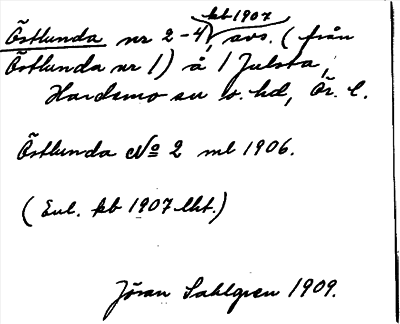 kb 1907
Östlunda nr 2-4, avs. (från
Östlunda nr 1) å 1 Julsta,
Hardemo sn o. hd, Ör. l.
Östlunda No 2 ml 1906.
(Enl. kb 1907 lht.)
Jöran Sahlgren 1909.